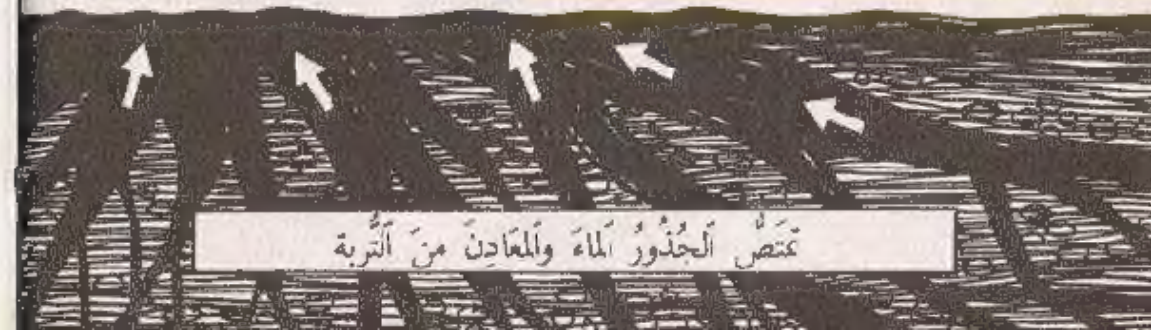 تَمتَصُّ ٱلجُذُورُ ٱلماءَ وٱلمَعَادِنَ منَ ٱلتُّربة